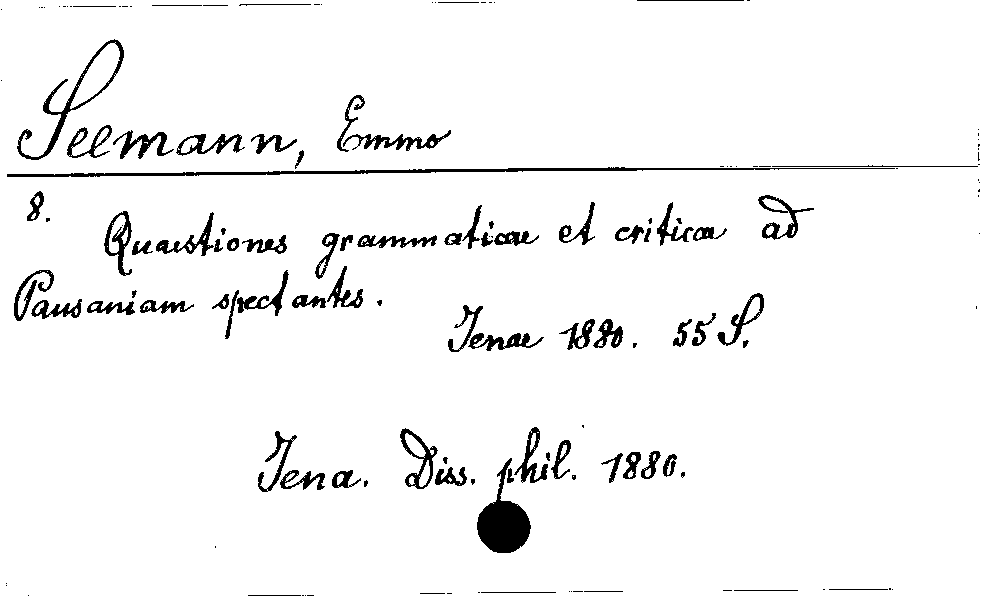 Seemann, Emmo
8.
Quaestiones grammaticae et criticae ad
Pausaniam spectantes.
Jenae 1880. 55 S.
Jena. Diss. phil. 1880.